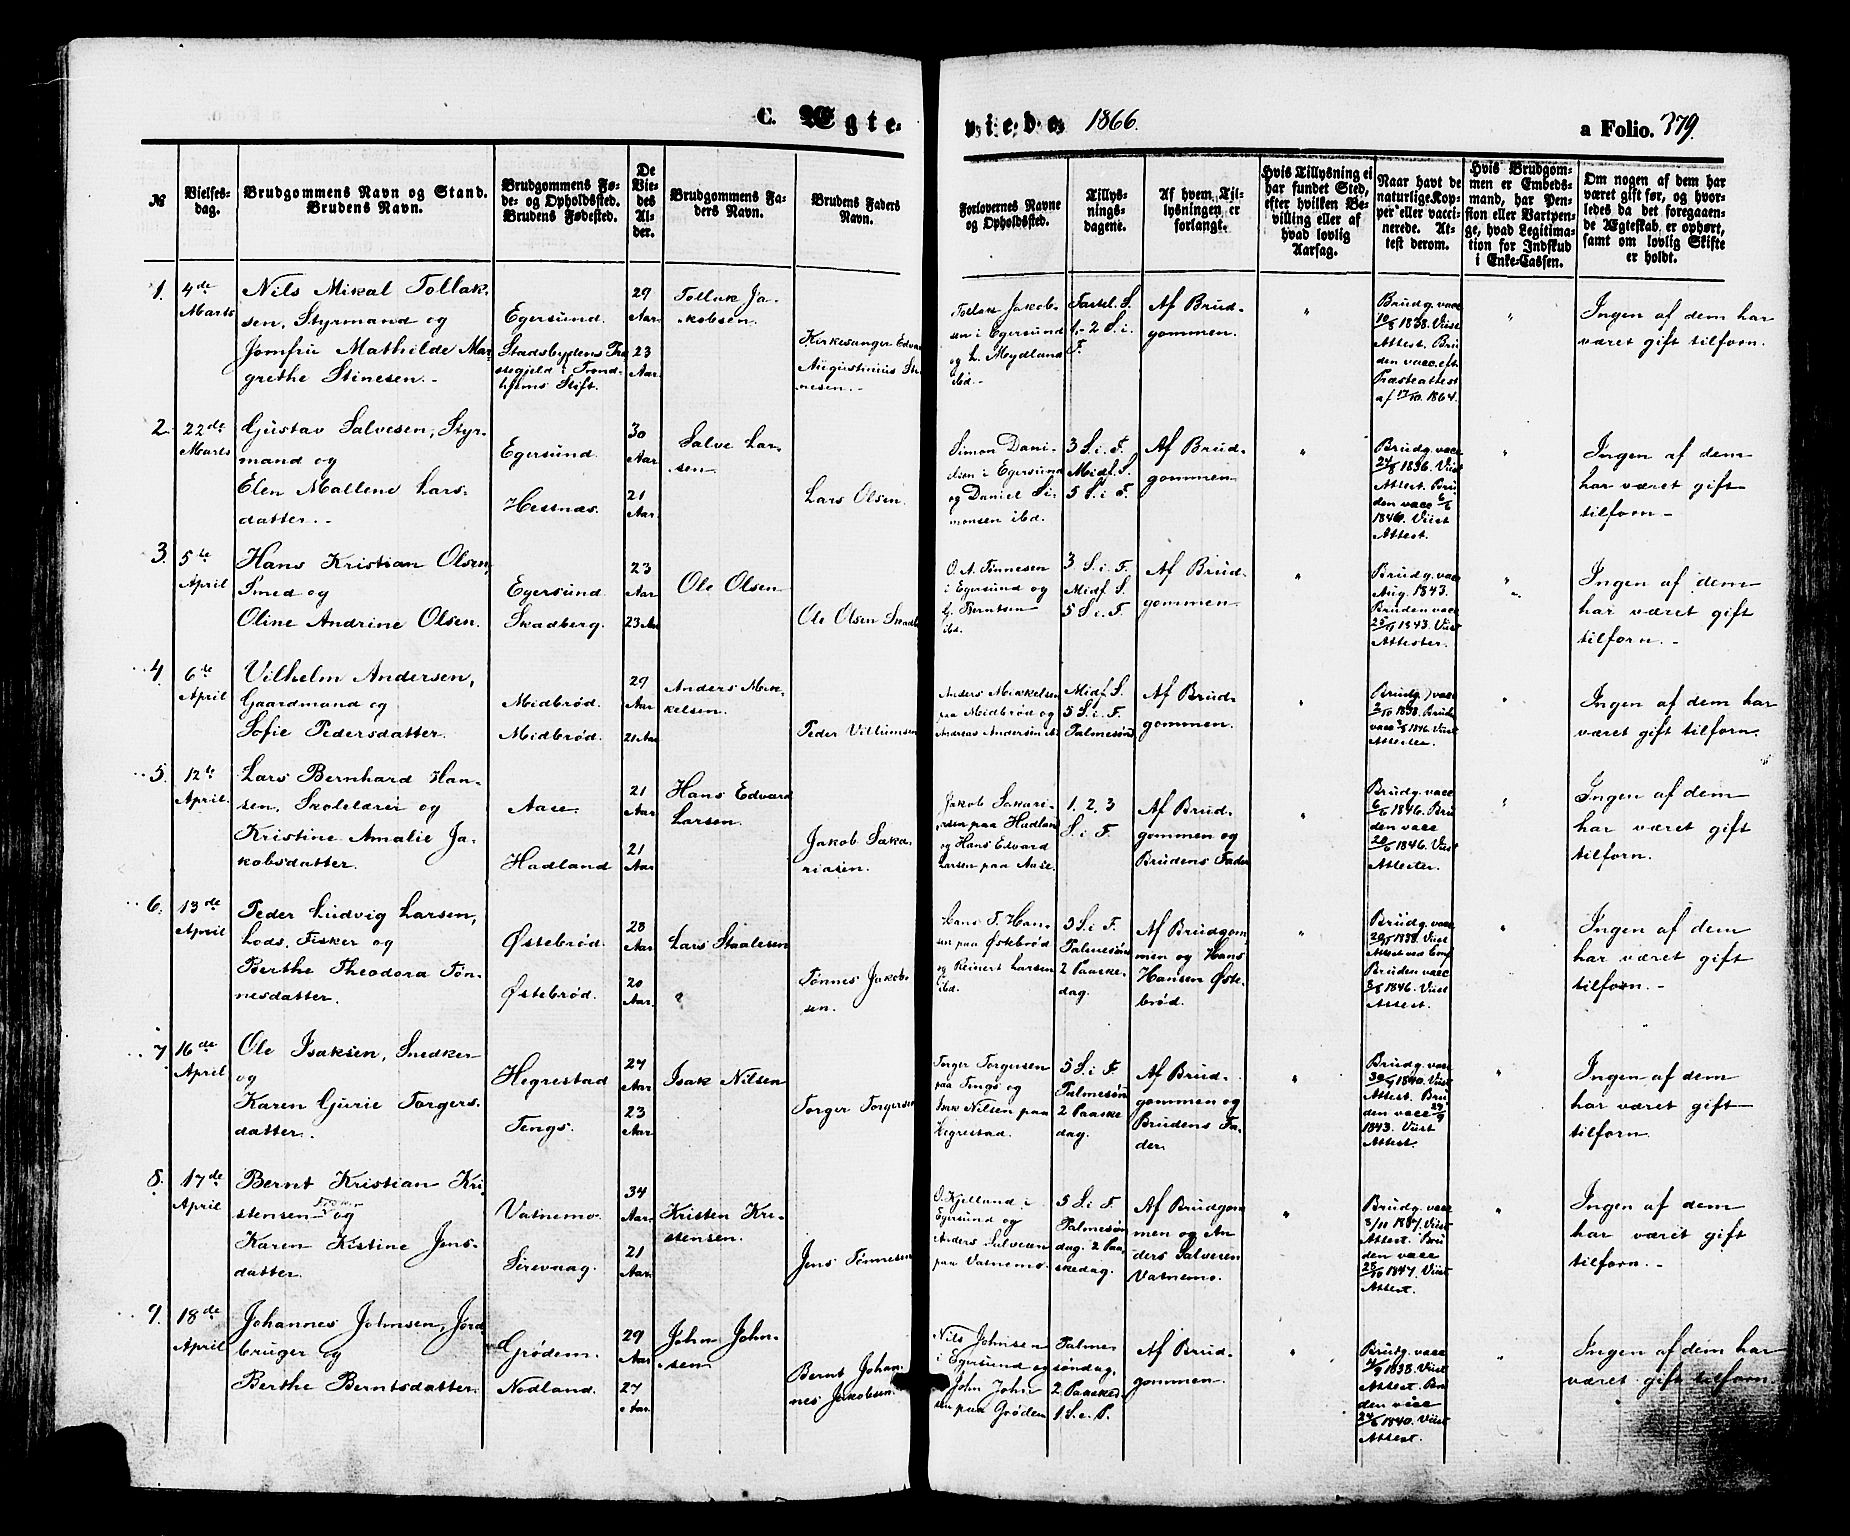 C. Ægte-
viede 1866.
a Folio. 379.
№
Vielses-
dag.
Brudgommens Navn og Stand.
Brudens Navn.
Brudgommens Fø-
de- og Opholdssted.
Brudens Fødested.
De
Vie-
des
Al-
der.
Brudgommens Fa-
ders Navn.
Brudens Faders
Navn.
Forlovernes Navne
og Opholdssted.
Tillys-
nings-
dagene.
Af hvem Til-
lysningen er
forlangt.
Hvis Tillysning ei
har fundet Sted,
efter hvilken Be-
villing eller af
hvad lovlig
Aarsag.
Naar havt de
naturlige Kop-
per eller vacci-
nerede. At-
test derom.
Hvis Brudgom-
men er Embeds-
mand, har Pen-
sion eller Vartpen-
ge, hvad Legitima-
tion for Indskud
i Enke-Cassen.
Om nogen af dem har
været gift før, og hvor-
ledes da det foregaaen-
de Ægteskab er ophørt,
samt om lovlig Skifte
er holdt.
1.
4de
Marts
Nils Mikal Tollak-
sen, Styrmand og
Jomfru Mathilde Mar-
grethe Stinesen.
Egersund.
Stadsbygdens Præ-
stegjeld i Trond-
hjems Stift.
29
Aar
23
Aar.
Tollak Ja-
kobsen.
Kirkesanger Edvard
Augustinius Sti-
nesen.
Tollak Jakob-
sen i Egersund
og L. Mydland
ibd.
Fastel. S.
1.-2 S. i
F.
Af Brud-
gommen.
"
Brudg. vacc
10/8 1838. Viist
Attest. Bru
den vacc. eft.
Præsteattest
af 17/10. 1864.
"
Ingen af dem har
været gift tilforn.
2.
22de
Marts
Gustav Salvesen, Styr-
mand og
Elen Mallene Lars-
datter.
Egersund.
Hestnæs.
30
Aar
21
Aar.
Salve Lar-
sen.
Lars Olsen.
Simon Dani-
elsen i Egersund
og Daniel Si-
monsen ibd.
3 S. i. F.
Midf. S.
5 S. i F.
Af Brud-
gommen.
"
Brudg. vacc
24/8 1836. Viist
Attest. Bru
den vacc 6/6
1846. Viist
Attest.
"
Ingen af dem
har været gift
tilforn
3.
5te
April
Hans Kristian Olsen,
Smed og
Oline Andrine Olsen.
Egersund
Skadberg.
23
Aar
23 Aar
Ole Olsen
Ole Olsen Skadb
O. A. Tønnesen
i Egersund og
G. Berntsen
ibd.
3 S. i. F.
Midf. S.
5 S. i F.
Af Brud-
gommen.
"
Brudg. vacc
Aug. 1843.
Bruden vacc
25/9 1843. Viist
Attester.
"
Ingen af dem
har været gift
tilforn.
4.
6te
April
Vilhelm Andersen,
Gaardmand og
Sofie Pedersdatter.
Midbrød.
Midbrød.
29
Aar
21 Aar
Anders Mik-
kelsen.
Peder Villumsen
Anders Mikkelsen
paa Midbrød og
Andreas Andersen ib.
Midf. S.
5 S. i. F.
Palmesønd
Af Brud-
gommen.
"
Brudg. vacc
2/10 1838. Bruden
vacc 2/8 1846. Viist
Attester.
"
Ingen af dem har
været gift tilforn.
5.
12te
April.
Lars Bernhard Han-
sen, Skolelærer og
Kristine Amalie Ja-
kobsdatter.
Aase.
Hadland
21
Aar
21
Aar
Hans Edvard
Larsen.
Jakob Saka-
riasen.
Jakob Sakari-
asen paa Hadland
og Hans Edvard
Larsen paa Aase.
1. 2. 3
S. i F.
Af Brud-
gommen og
Brudens Fader
"
Brudg. vacc
6/6 1846. Bru
den vacc
20/6 1846. Viist
Attester.
"
Ingen af dem
har været gift
tilforn.
6.
13de
April.
Peder Ludvig Larsen,
Lods, Fisker og
Berthe Theodora Tøn-
nesdatter.
Østebrød.
Østebrød.
28
Aar
20
Aar.
Lars Staalesen
Tønnes Jakob-
sen.
Hans T. Han-
sen paa Østebrød
og Reinert Larsen
ibd.
5 S. i F.
Palmesøn
2 Paaske-
dag.
Af Brudgom
men og Hans
Hansen Øste-
brød.
"
Brudg. vacc
1838. Viist
Bruden vacc
1846. Viist
Attest.
"
Ingen af dem
har været gift
tilforn.
7
16de
April
Ole Isaksen, Snedker
og
Karen Gurie Torgers-
datter.
Hegrestad
Tengs.
24
Aar
23
Aar.
Isak Nilsen
Torger Torgersen
Torger Torgersen
paa Tengs og
Isak Nilsen paa
Hegrestad.
5 S. i F
Palmesøn
2 Paaske
dag.
Af Brud-
gommen og
Brudens Fa-
der.
"
Brudg. vacc
1840. Viist
Attest. Bru
den vacc 24/9
1843. Viist
Attest.
"
Ingen af dem
har været gift
tilforn.
8.
17de
April
Bernt Kristian Kri-
stensen og
Karen Kistine Jens-
datter.
Vatnemo.
Sirevaag.
34
Aar
21
Aar.
Kristen Kri-
stensen.
Jens Tønnesen
O. Kjelland i
Egersund og
Anders Salvesen
paa Vatnemo.
5 S. i F.
Palmesøn
dag. 2 Paa-
skedag.
Af Brudgom
men og An
ders Salvesen
Vatnemo.
"
Brudg. vacc
Attest. Bru
den vacc
25/10 1847. Viist
Attest.
Ingen af dem
har været gift
tilforn.
9.
18de
April
Johannes Johnsen, Jord-
bruger og
Berthe Berntsdatter.
Grødem.
Nodland.
29
Aar
27
Aar.
John John-
sen
Bernt Johan-
nes Jakobsen.
Nils Johnsen
i Egersund og
John John
sen paa Grødem
Palme-
søndag.
2 Paasked.
1 S. e. P.
Af Brud-
gommen.
"
Brudg. vacc
4/9 1838. Viist
Attest. Bru
den vacc
24/6 1840. Viist
Attest.
"
Ingen af dem har
været gift tilforn.